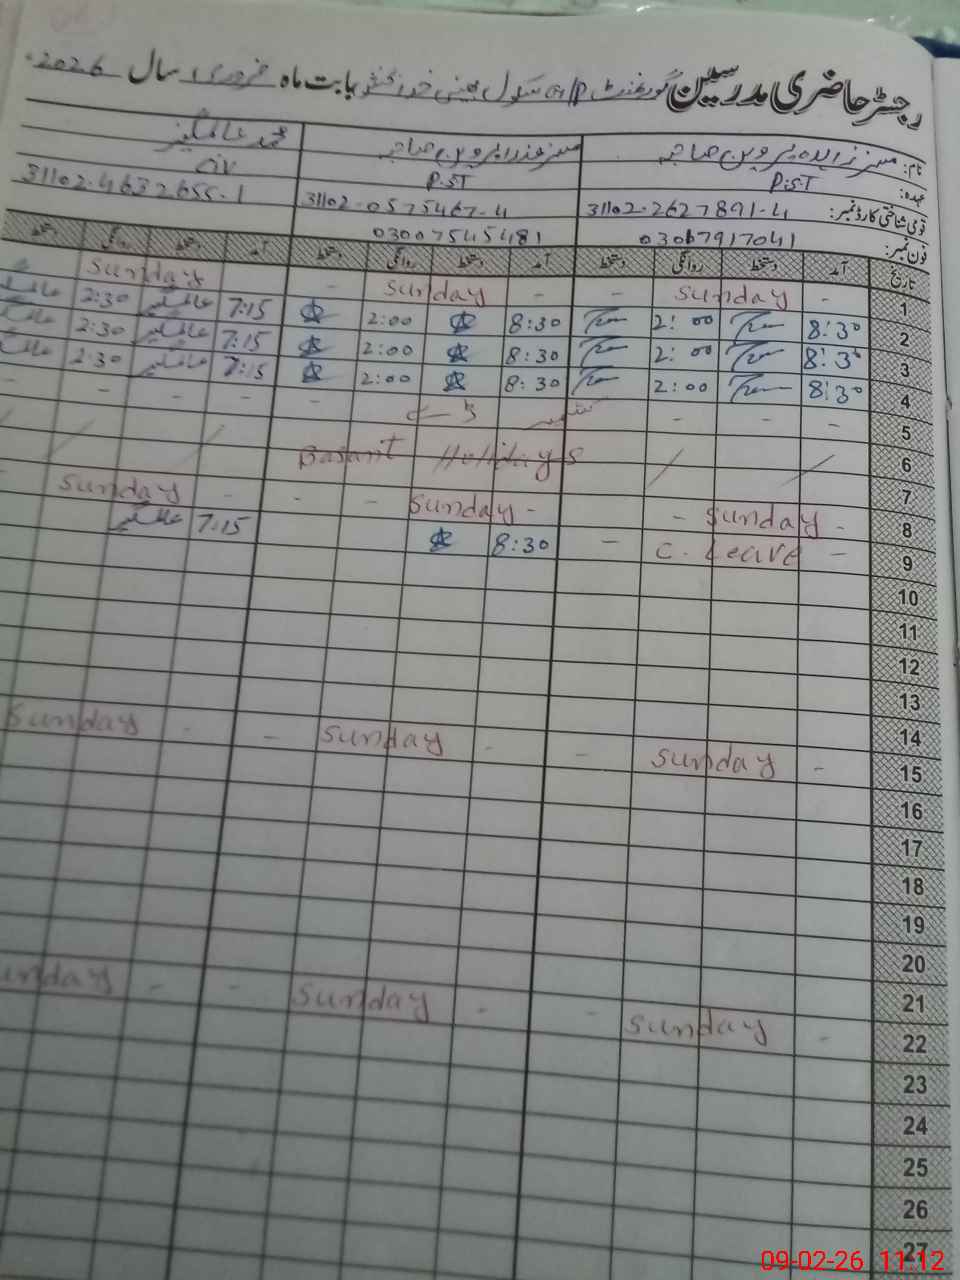 رجسٹر حاضری مدرسین گورنمنٹ G/P سکول بستی خدا بخش بابت ماہ فروری سال 2026
نام: مسز زاہدہ پروین صاحبہ مسز عذرا پروین صاحبہ محمد عالمگیر
عہدہ: P.S.T P.S.T C.IV
قومی شناختی کارڈ نمبر: 31102-2627891-4 31102-0575467-4 31102-4632655-1
فون نمبر: 03067917041 03007545481
تاریخ آمد دستخط روانگی دستخط آمد دستخط روانگی دستخط آمد دستخط روانگی دستخط
1 - Sunday - - Sunday - - Sunday
2 8:30 2:00 8:30 2:00 7:15 عالمگیر 2:30 عالمگیر
3 8:30 2:00 8:30 2:00 7:15 عالمگیر 2:30 عالمگیر
4 8:30 2:00 8:30 2:00 7:15 عالمگیر 2:30 عالمگیر
5 - - - کشمیر ڈے - - - - -
6 Basant Holidays
7
8 - Sunday - - Sunday - - - Sunday -
9 - C. Leave - 8:30 7:15 عالمگیر
10
11
12
13
14
15 - Sunday - - Sunday - - Sunday
16
17
18
19
20
21
22 - Sunday - - Sunday - - Sunday
23
24
25
26
27
09-02-26 11:12